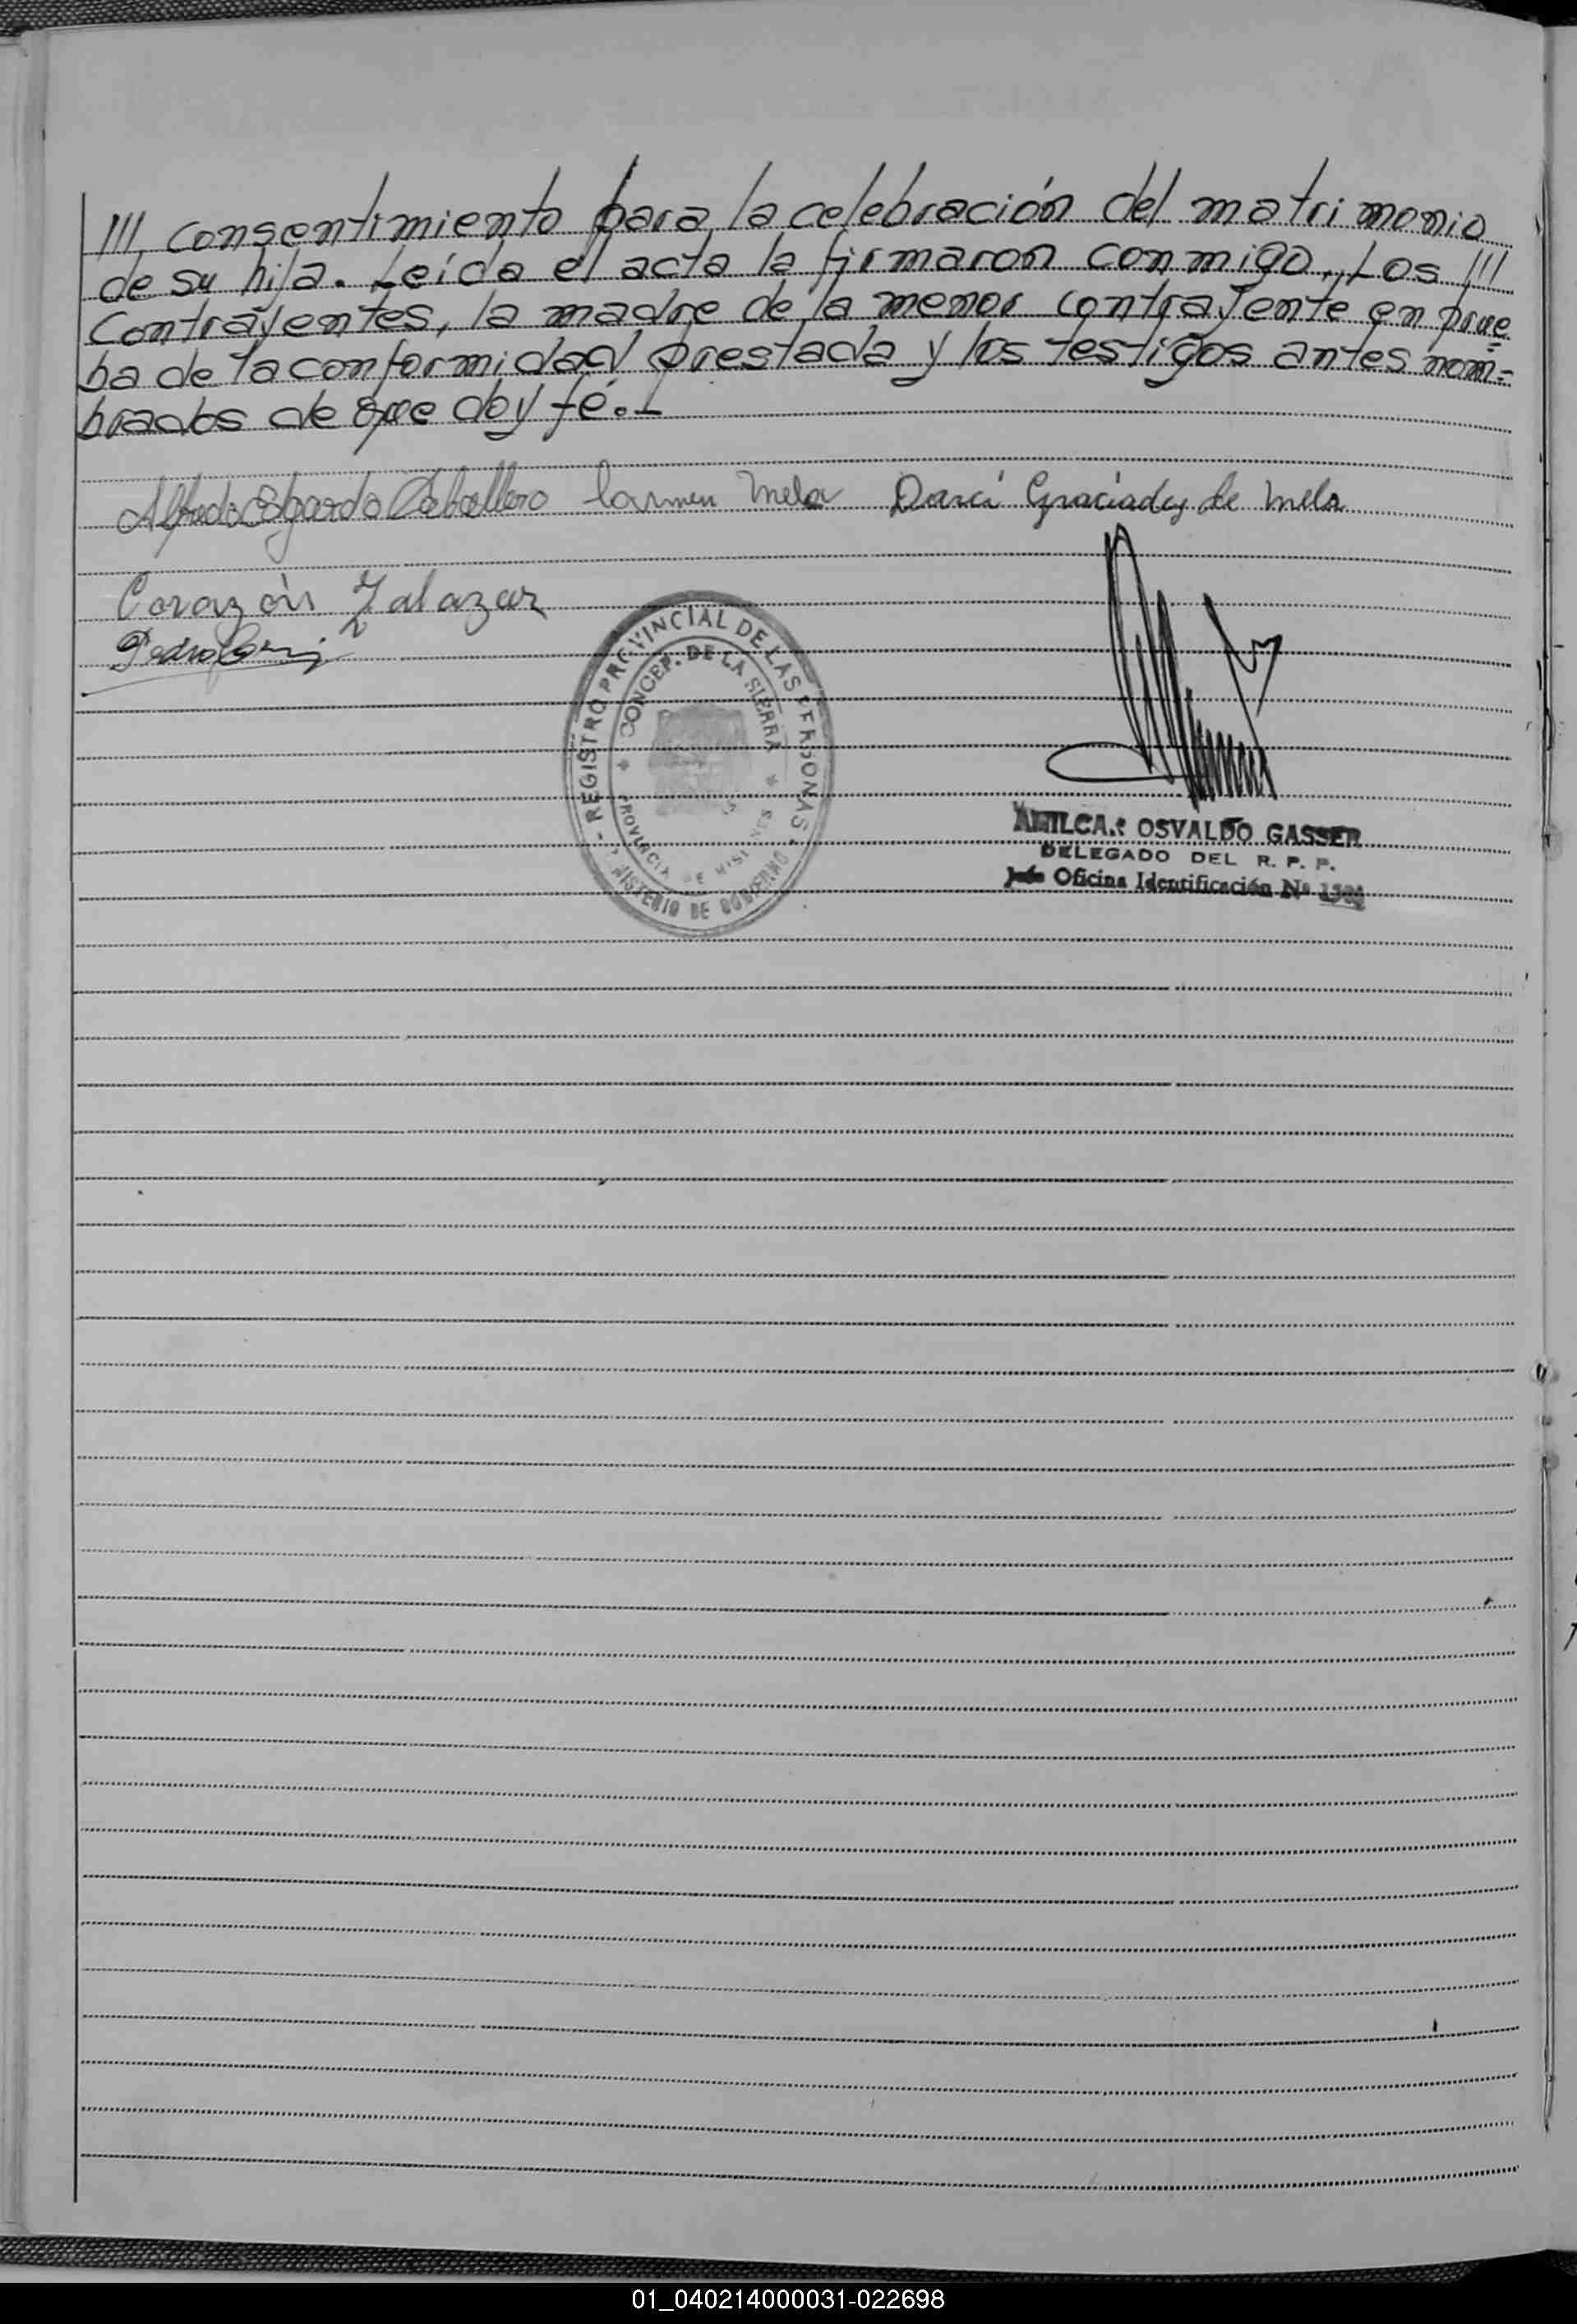 /// consentimiento para la celebración del matrimonio
de su hija. Leída el acta la firmaron conmigo, Los ///
Contrayentes, la madre de la menor contrayente en prue
ba de la conformidad prestada y los testigos antes nom=
brados de que doy fé.-
Alfredo Edgardo Caballero Carmen Mela Darci Graciady de Mela
Corazón Zalazar
Pedro
REGISTRO PROVINCIAL DE LAS PERSONAS
CONCEP. DE LA SIERRA
PROVINCIA DE MISIONES
MINISTERIO DE GOBIERNO
AMILCAR OSVALDO GASSER
DELEGADO DEL R. P. P.
Jefe Oficina Identificación Nº
01_040214000031-022698